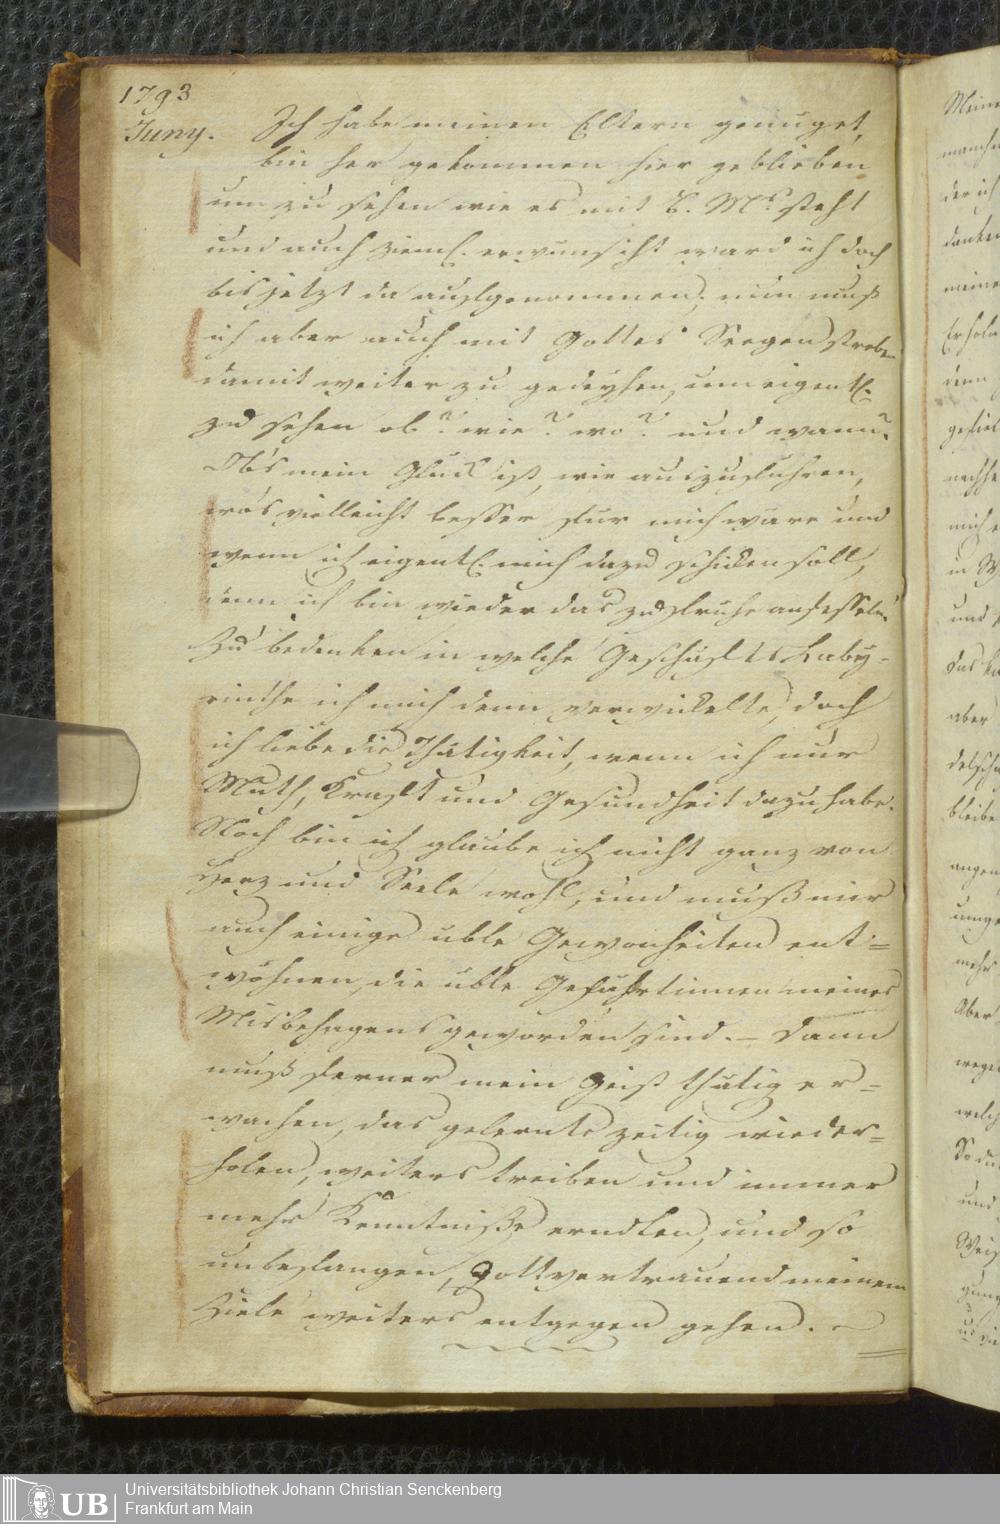 1793
Juny. Ich habe meinen Eltern genüget,
bin her gekommen hier geblieben
um zu sehen wie es mit B. Ms steht
und auch ziemł. erwünscht ward ich doch
bis jetzt da aufgenommen; nun muß
ich aber auch mit Gottes Seegen streben
damit weiter zu gedeyhen, um eigentl.
zu sehen ob? wie? wo? und wann?
Ob's mein Glück ist, wie auszuführen,
wo's vielleicht besser für mich wäre und
wenn ich eigentl. mich dazu schicken soll,
denn ich bin wieder das zu frühe anfesseln.
Zu bedenken in welche Geschäfts Laby-
rinthe ich mich denn verwickelte, doch
ich liebe die Thätigkeit, wenn ich nur
Muth, Kraft und Gesundheit dazu habe.
Noch bin ich glaube ich nicht ganz von
Herz und Seele wohl, und muß mir
auch einige üble Gewonheiten ent=
wöhnen, die üble Gefährtinnen meines
Misbehagens geworden sind. – Dann
muß ferner mein Geist thätig er=
wachen, das gelernte zeitig wieder=
holen, weiters treiben und immer
mehr Kenntniße erndten, und so
unbefangen, Gottvertrauend meinem
Ziele weiters entgegen gehen. –
UB
Universitätsbibliothek Johann Christian Senckenberg
Frankfurt am Main